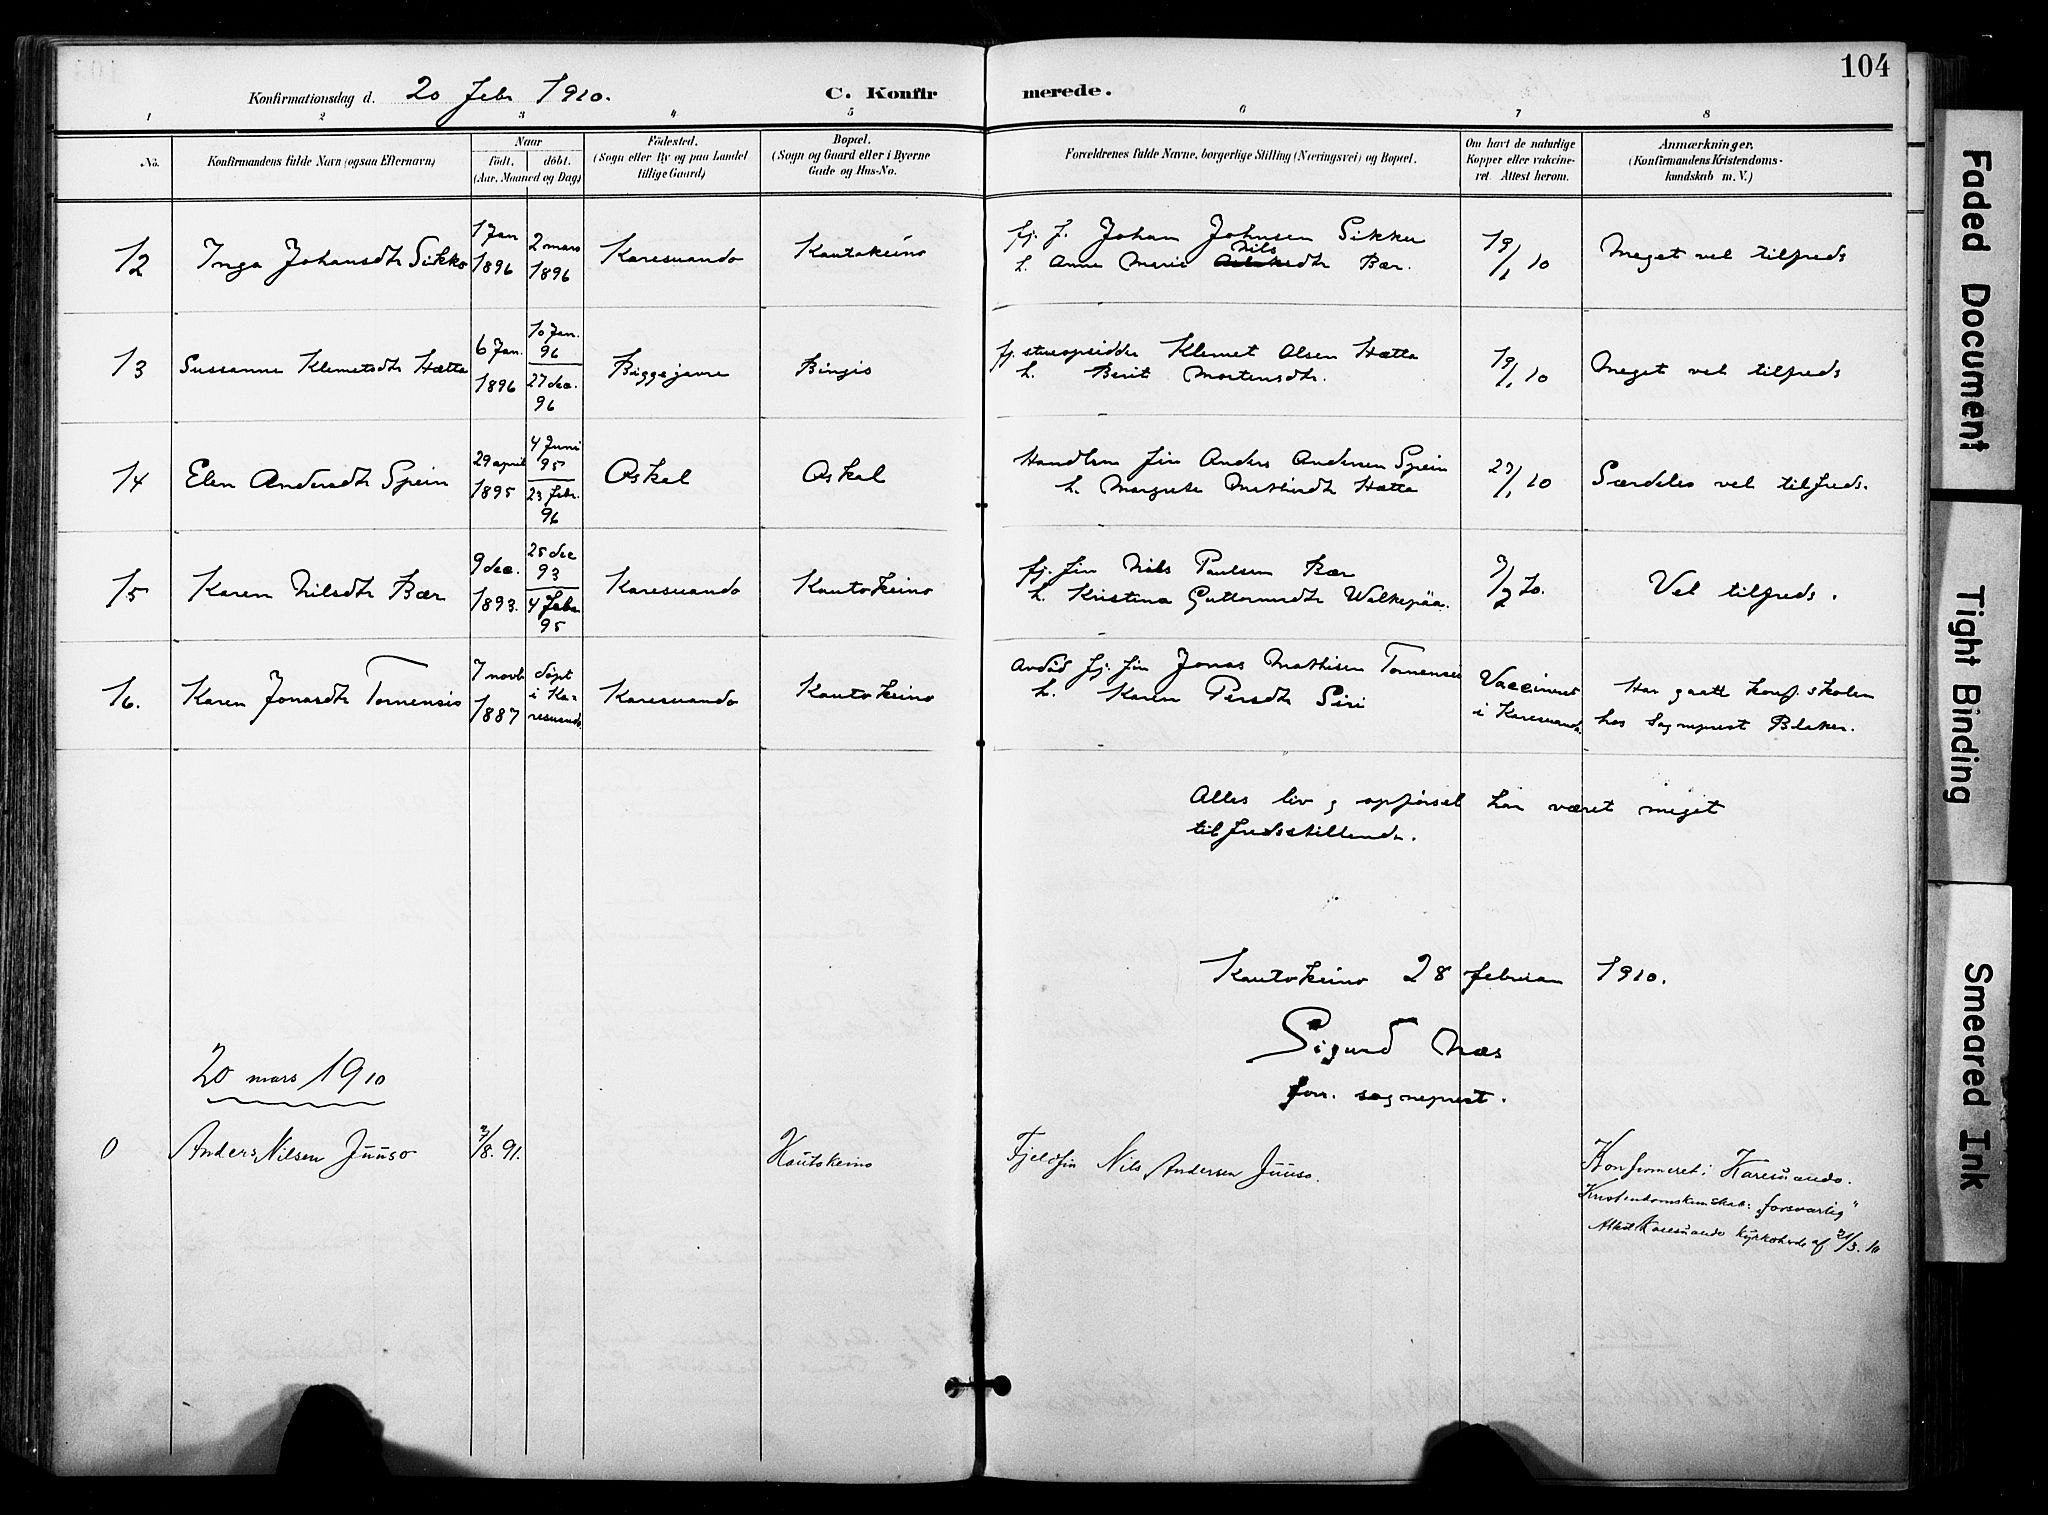 104
Konfirmationsdag d. 20 Febr 1910. C. Konfirmerede.
1 2 3 4 5 6 7 8
No. Konfirmandens fulde Navn (ogsaa Efternavn)
Naar
födt. döbt.
(Aar, Maaned og Dag)
Födested.
(Sogn eller By og paa Landet
tillige Gaard)
Bopæl.
(Sogn og Gaard eller i Byerne
Gade og Hus-No.
Forældrenes fulde Navne, borgerlige Stilling (Næringsvei) og Bopæl.
Om havt de naturlige
Kopper eller vakcine-
ret. Attest herom.
Anmærkninger.
(Konfirmandens Kristendoms-
kundskab m. V.)
12 Inga Johansdtr Sikko 1 Jan 1896 2 mars 1896 Karesuando Kautokeino
fj. f. Johan Johnsen Sikku
h. Anne Marie Nilsdtr Bær.
19/1 10 Meget vel tilfreds
13 Sussanne Klemetsdtr Hætta 6 Jan. 1896 10 Jan. 96 27 dec. 96 Biggejavre Bingis
fj. stueopsidder Klemet Olsen Hætta
h. Berit Mortensdtr.
19/1 10 Meget vel tilfreds
14 Elen Andersdtr Spein 29 april 1895 4 Juni 95 23 febr. 96 Oskal Oskal
Handlem fin Anders Andersen Spein
h. Margrete Mathisdtr Hætta
27/1 10 Særdeles vel tilfreds.
15 Karen Nilsdtr Bær 9 dec. 1893. 25 dec 93 4 febr 95 Karesuando Kautokeino
fj. fin Nils Paulsen Bær
h. Kristina Guttormsdtr Walkepää.
7/2 10. Vel tilfreds.
16. Karen Jonasdtr Tornensis 7 novb 1887 döpt i Karesuando Karesuando Kautokeino
Avdöd fj. fin Jonas Mathisen Tornensis
h. Karen Persdtr Siri
Vaccineret
i Karesuando.
Har gaatt konf. skolen
hos Sogneprest Bleker.
Alles liv og opförsel har været meget
tilfredsstillende.
Kautokeino 28 februar 1910.
Sigurd Næs
forr. sogneprest.
20 mars 1910
0 Anders Nilsen Juuso /8. 91. Kautokeino
Fjeldfin Nils Andersen Juuso.
Konfirmeret i Karesuando.
Kristendomskunskab: "forsvarlig"
Attest Karesuando kyrkoherde af 21/3. 10
Faded Document
Tight Binding
Smeared Ink